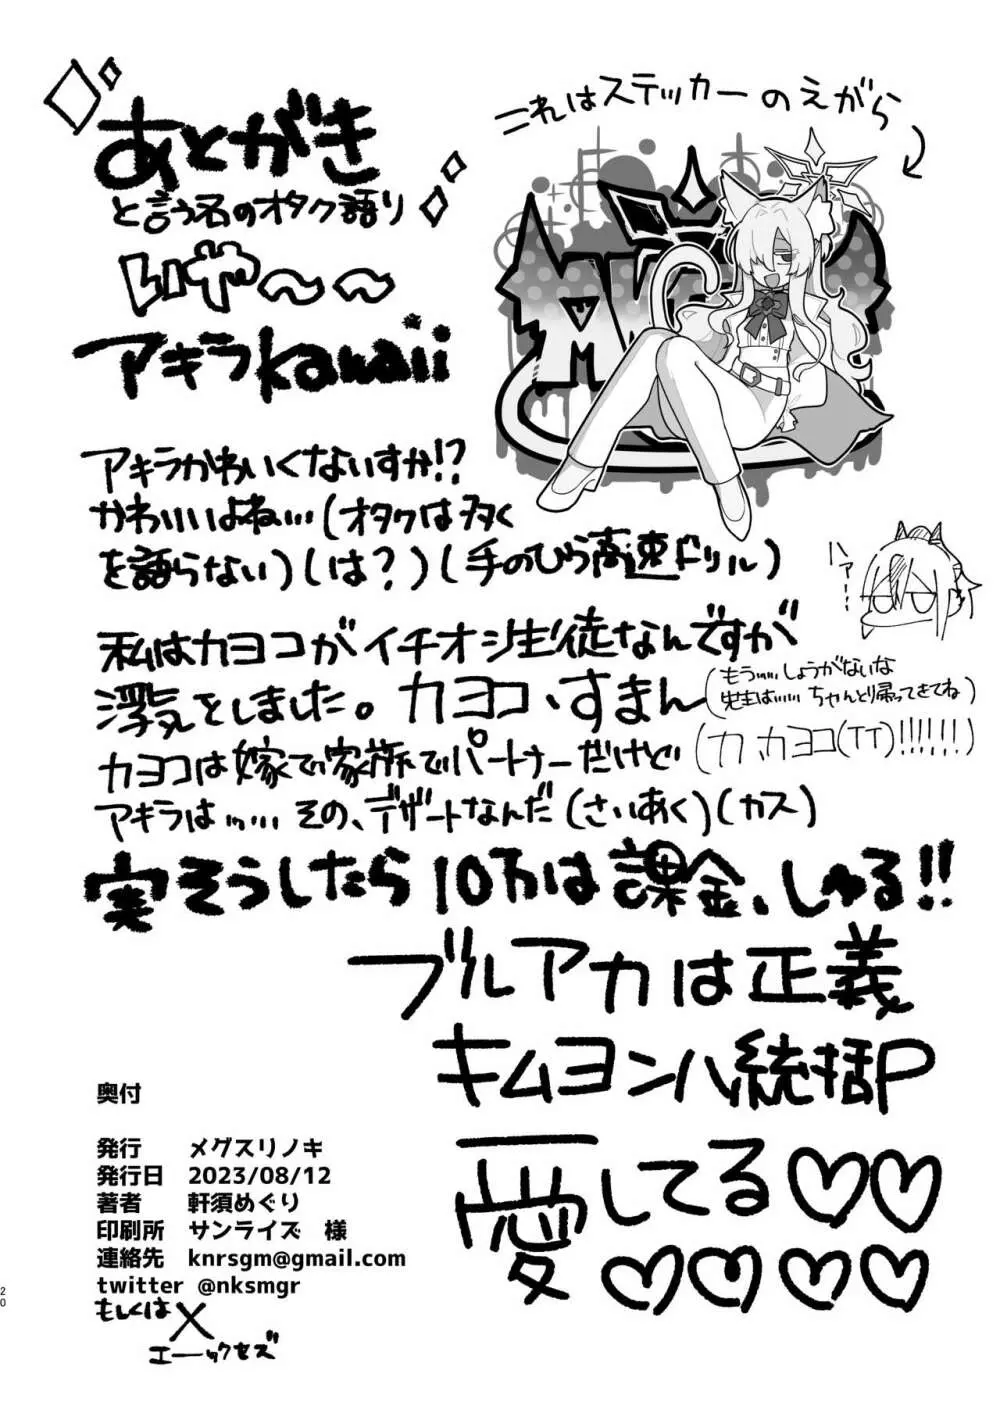 これはステッカーのえがら
あとがき
と言う名のオタク語り
いや〜〜
アキラkawaii
アキラかわいくないすか!?
かわいいよね…(オタクは多く
を語らない)(は?)(手のひら高速ドリル)
ハァー…
私はカヨコがイチオシ生徒なんですが
浮気をしました。カヨコ、すまん
(もう……しょうがないな
先生は……ちゃんと帰ってきてね)
カヨコは嫁で家族でパートナーだけど
(カ、カヨコ(TT)!!!!!!)
アキラは……その、デザートなんだ(さいあく)(カス)
実そうしたら10万は課金、しゅる!!
ブルアカは正義
キムヨンハ統括P
愛してる♡♡
♡♡♡♡
奥付
発行 メグスリノキ
発行日 2023/08/12
著者 軒須めぐり
印刷所 サンライズ 様
連絡先 knrsgm@gmail.com
twitter @nksmgr
もしくはX
エーックセズ
20